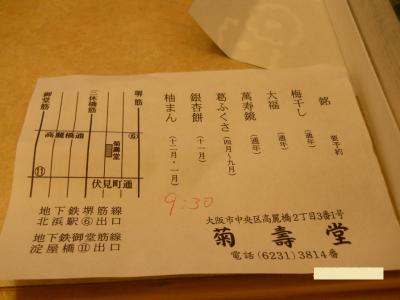 銘 要予約
梅干し (通年)
大福 (通年)
萬寿鏡 (通年)
葛ふくさ (四月〜九月)
銀杏餅 (十一月)
柚まん (十二月・一月)
9:30
大阪市中央区高麗橋2丁目3番1号
菊壽堂
電話(6231)3814番
堺筋
三休橋筋
御堂筋
高麗橋通
⑥
菊壽堂
伏見町通
⑪
地下鉄堺筋線
北浜駅⑥出口
地下鉄御堂筋線
淀屋橋⑪出口